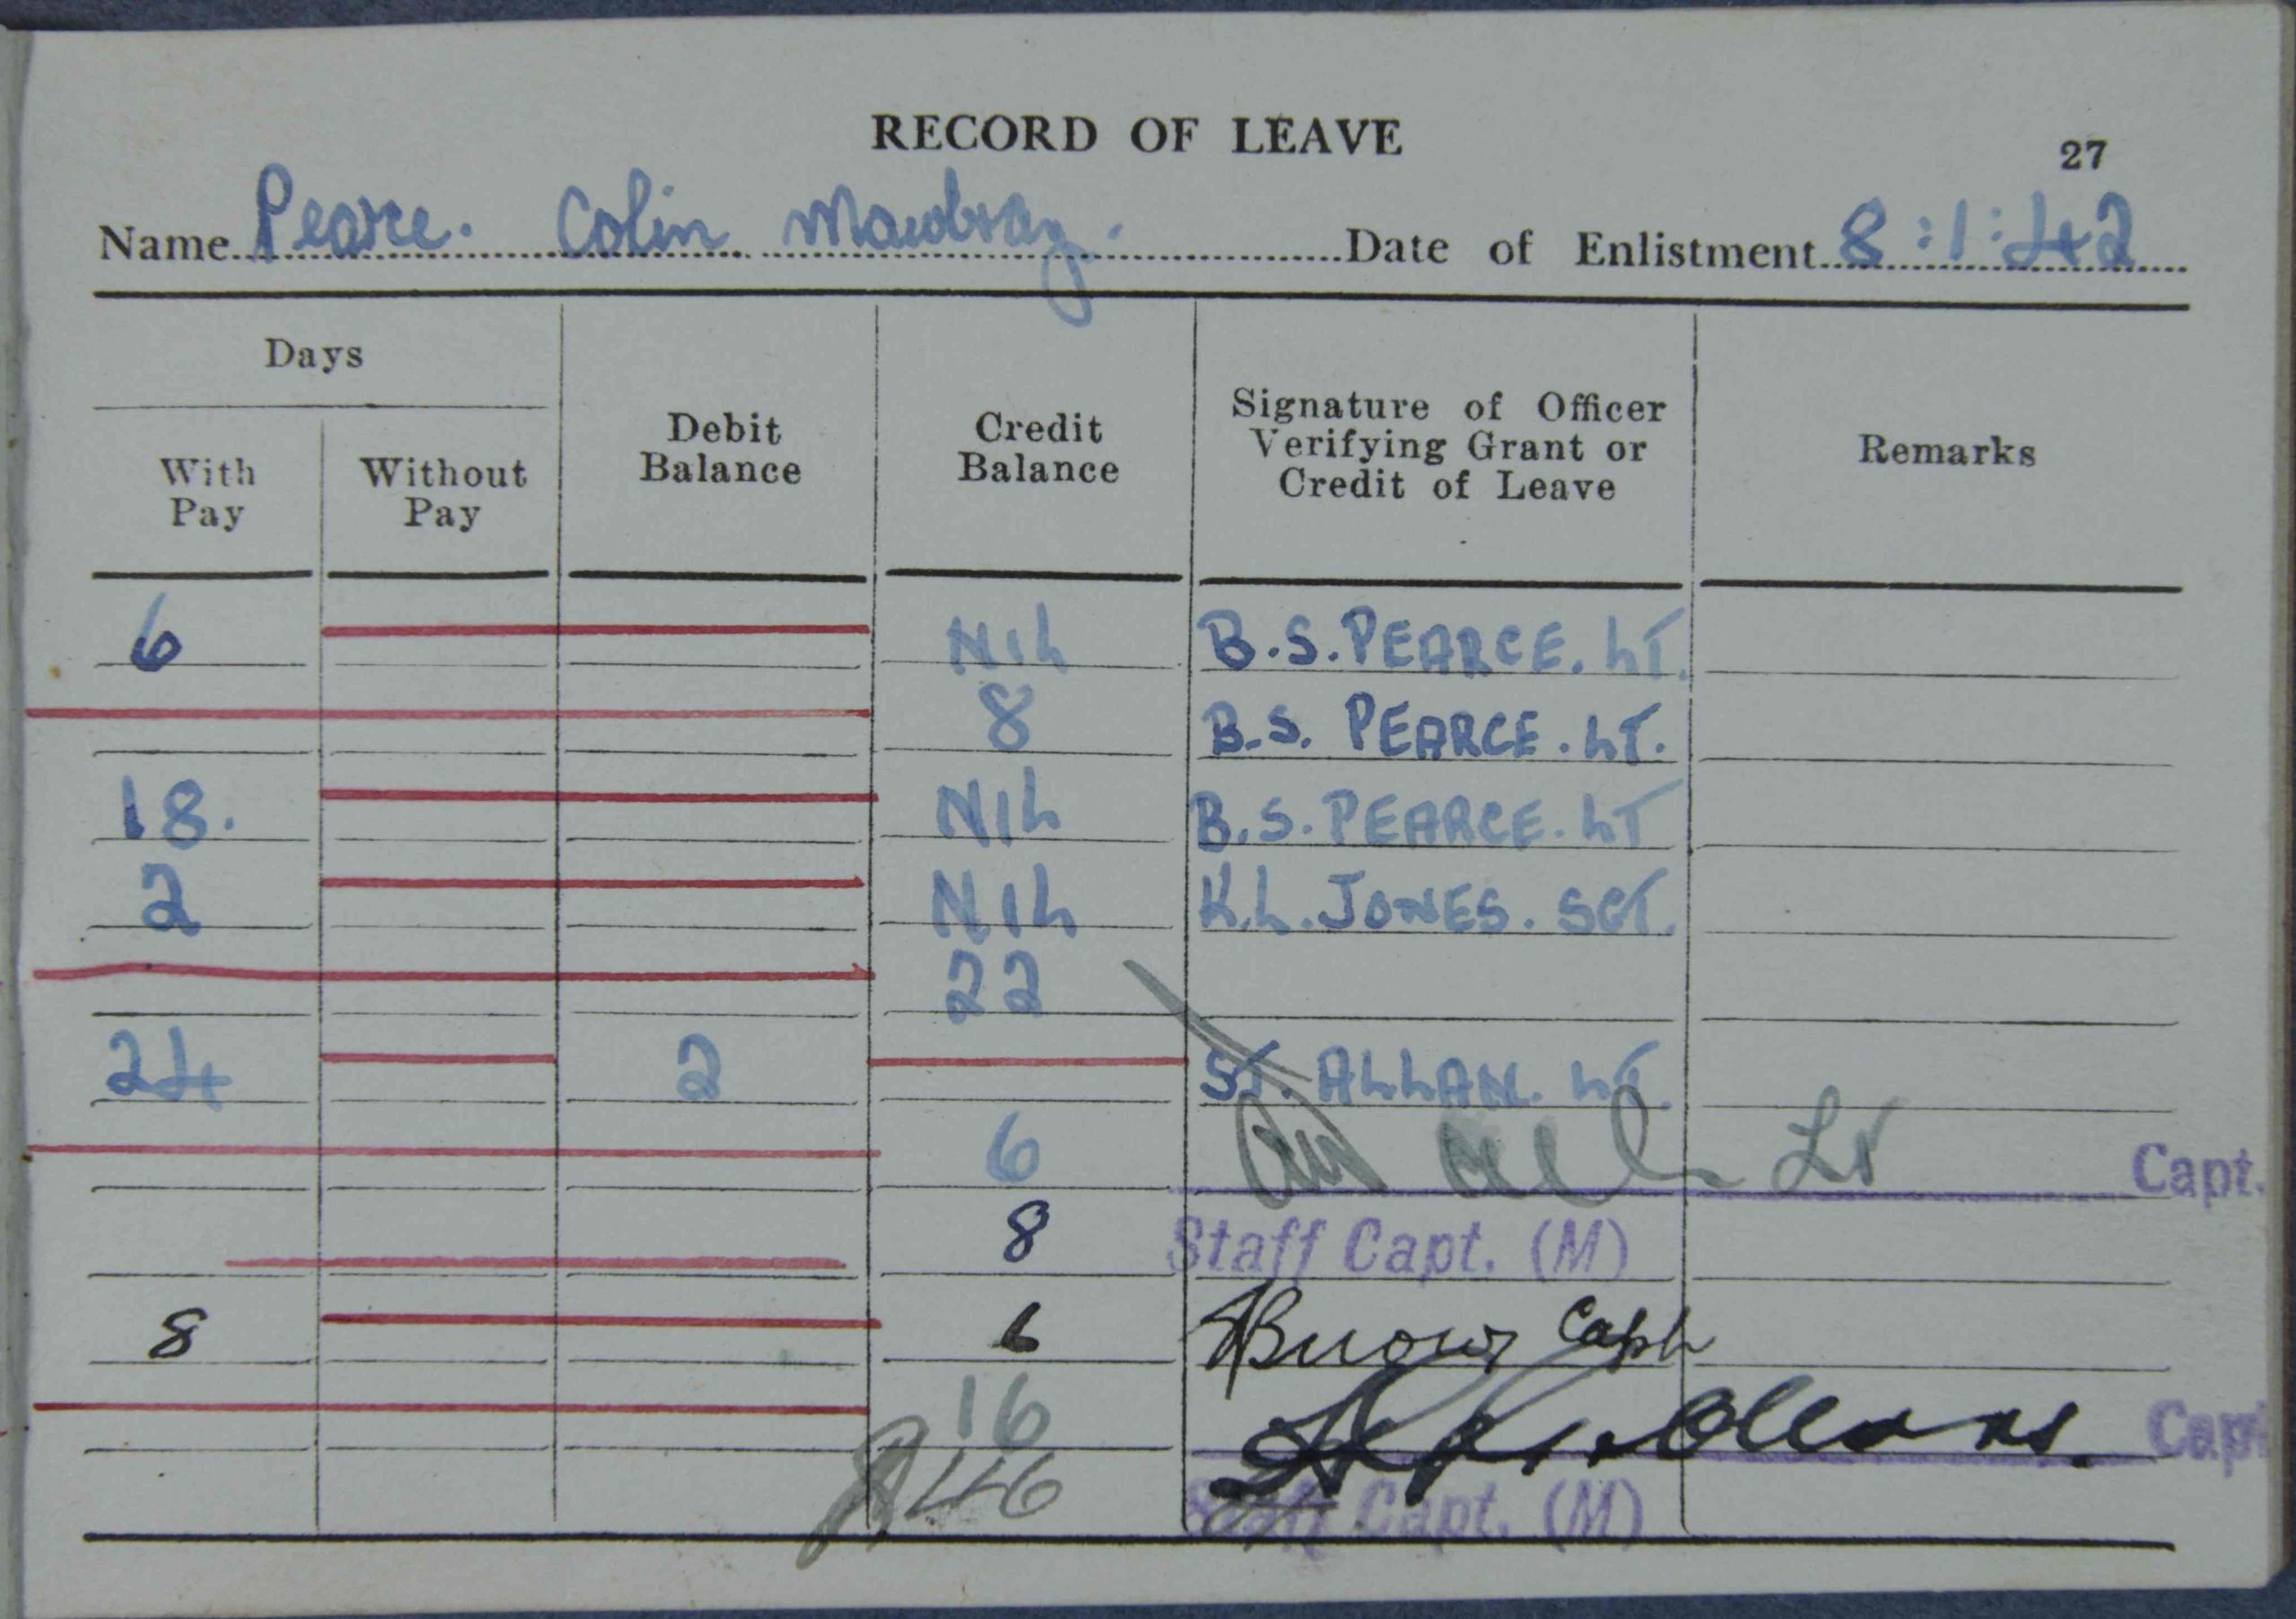 RECORD OF LEAVE
27
Name Pearce. Colin Mowbray. Date of Enlistment 8:1:42
Days
Debit Balance
Credit Balance
Signature of Officer Verifying Grant or Credit of Leave
Remarks
With Pay
Without Pay
6 NIL B.S. PEARCE. LT.
8 B.S. PEARCE. LT.
18. NIL B.S. PEARCE. LT
2 NIL K.L. JONES. SGT.
22
24 2 S.T. ALLAN. LT.
6 Lt Capt.
8 Staff Capt. (M)
8 6 Capt
16 Capt
46 Staff Capt. (M)